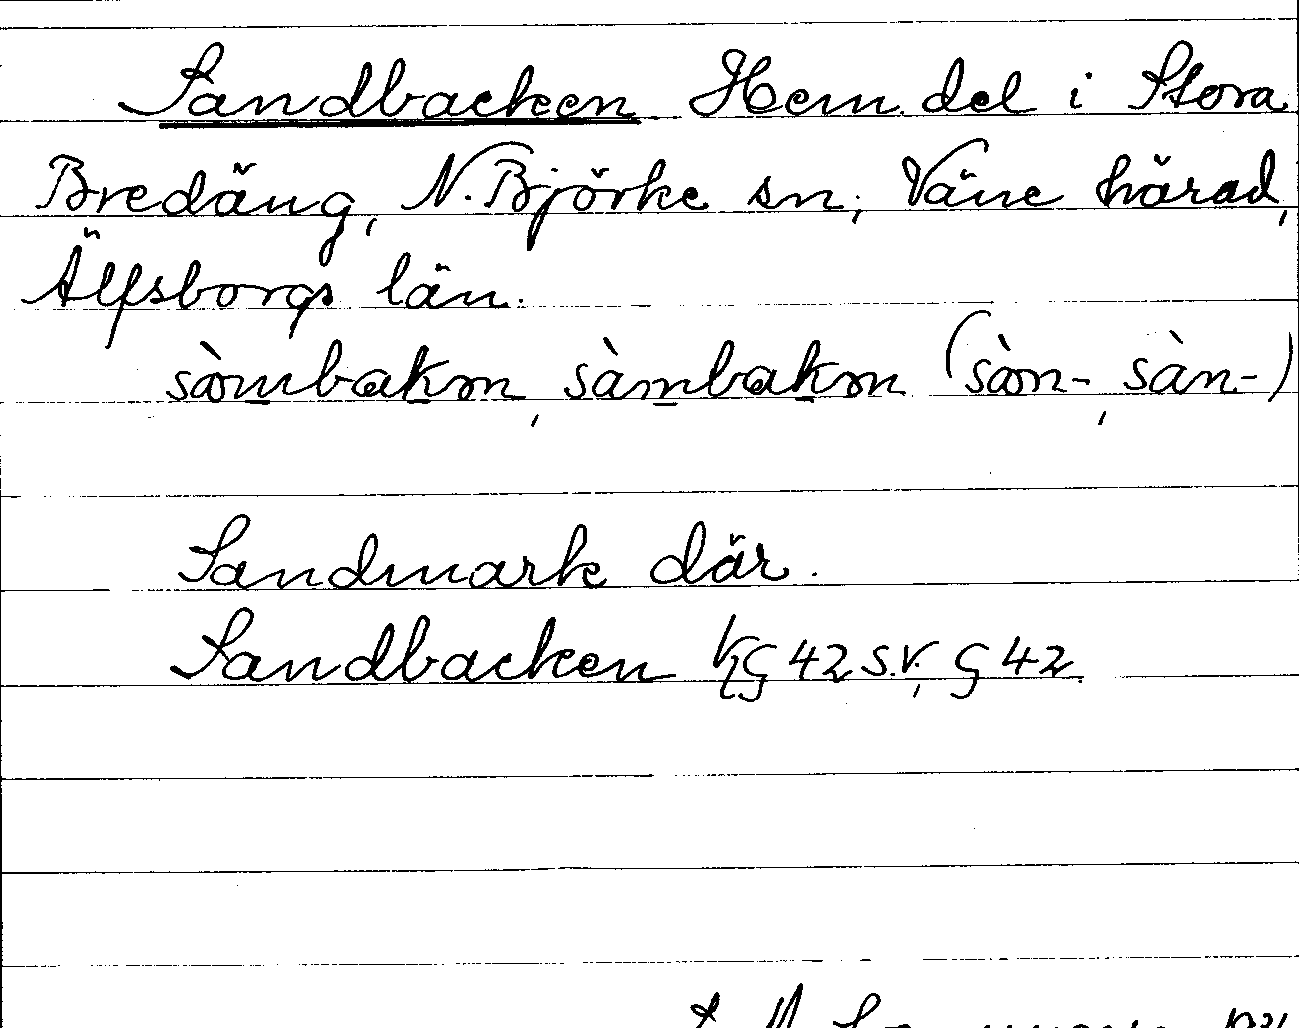 Sandbacken Hem. del i Stora
Bredäng, N. Björke sn, Väne härad,
Älfsborgs län.
sòmbakɷn, sàmbakɷn (sòn-, sàn-)
Sandmark där.
Sandbacken KG 42 S.V., G 42.